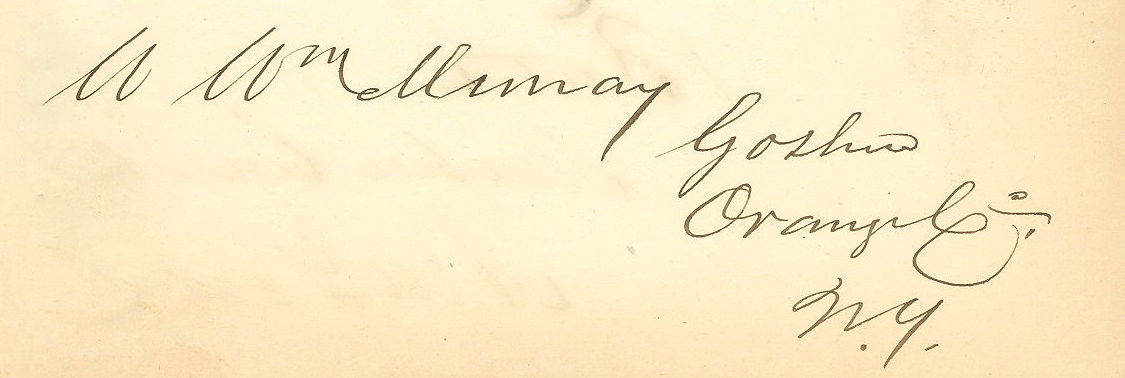 W Wm Murray
Goshen
Orange Co.
N.Y.